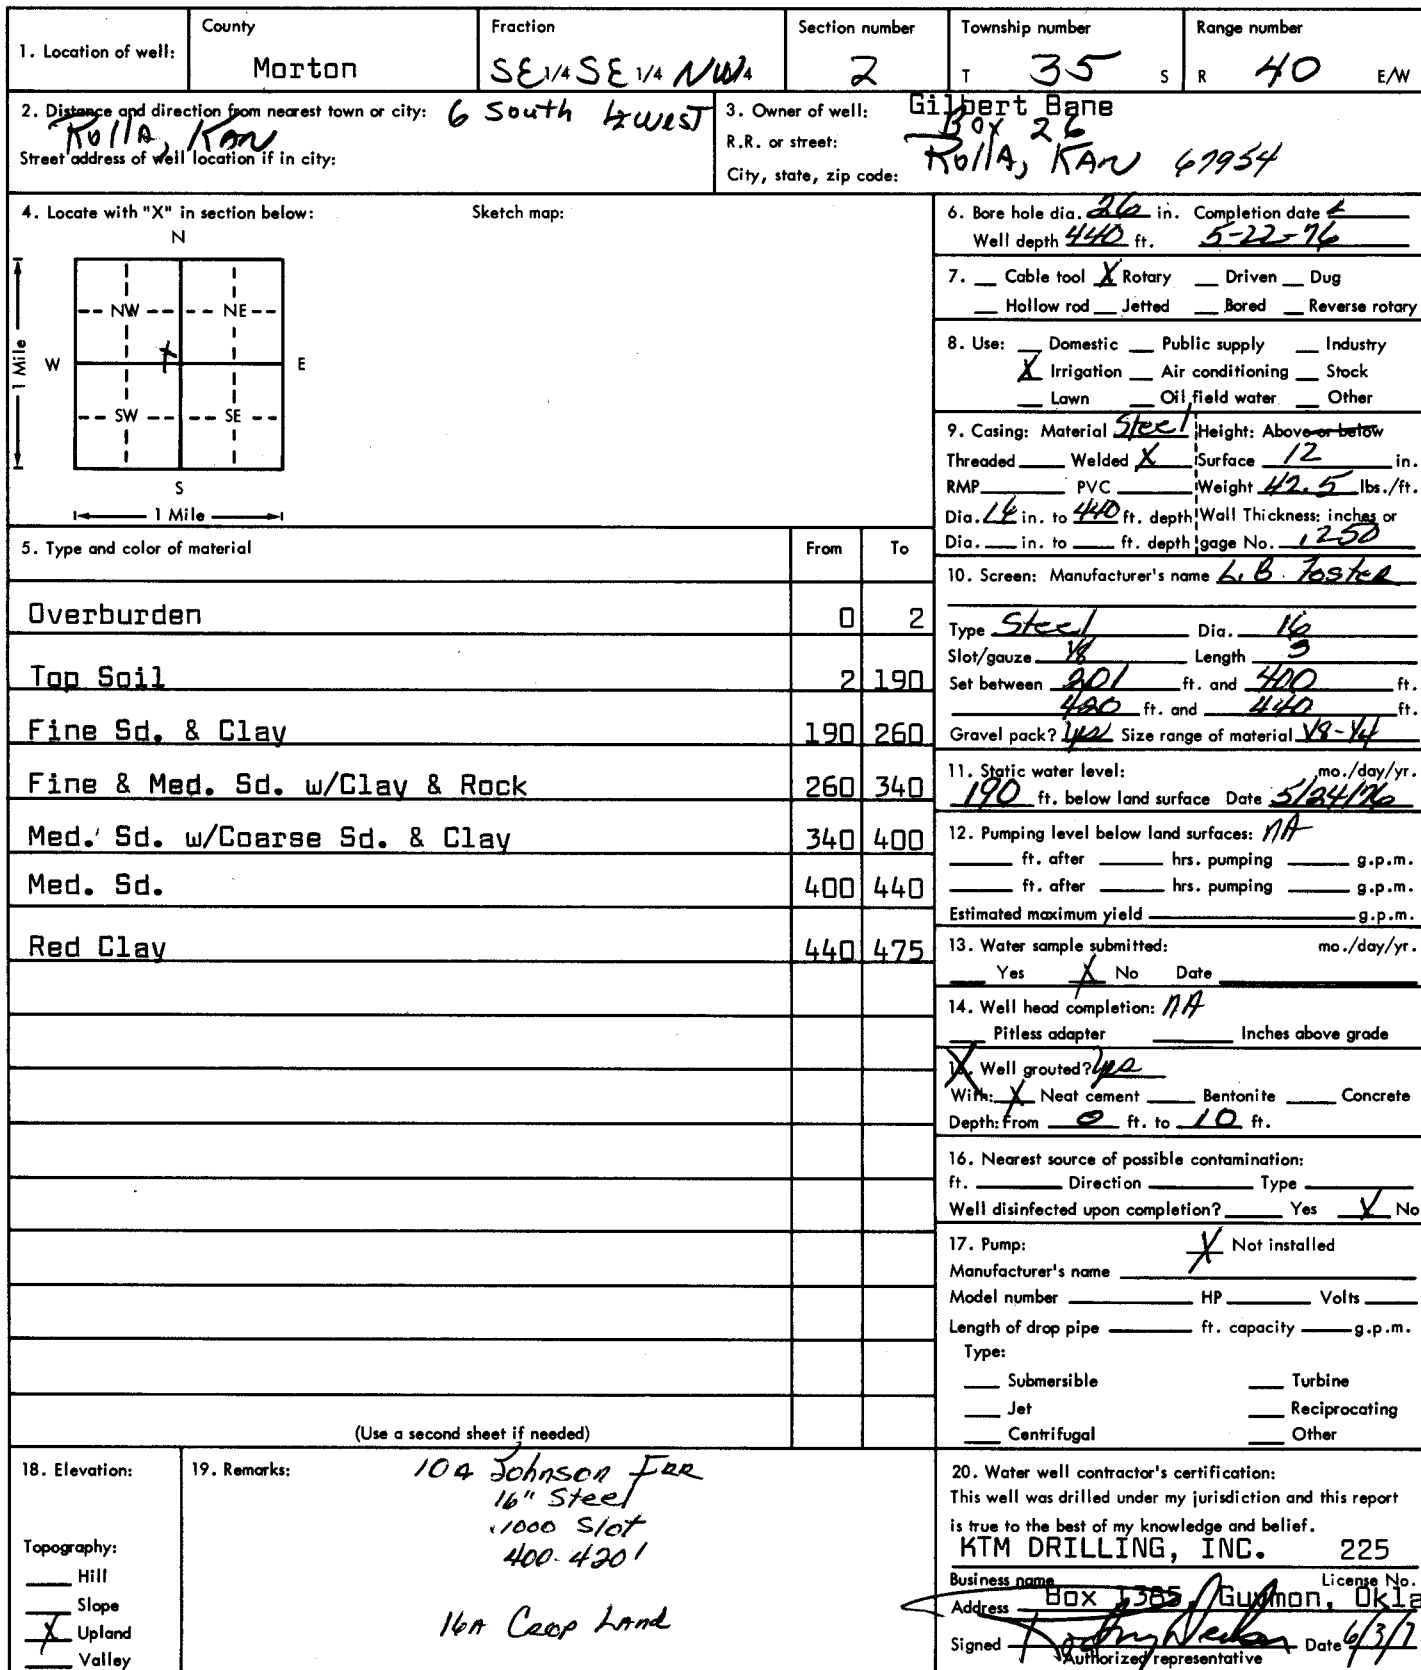 1. Location of well:
County
Morton
Fraction
SE 1/4 SE 1/4 NW 1/4
Section number
2
Township number
T 35 S
Range number
R 40 E/W
2. Distance and direction from nearest town or city: 6 South 1/2 west
Rolla, Kan
Street address of well location if in city:
3. Owner of well: Gilbert Bane
R.R. or street: Box 26
City, state, zip code: Rolla, Kan 67954
4. Locate with "X" in section below:
Sketch map:
N
NW NE
W X E
SW SE
S
1 Mile
1 Mile
5. Type and color of material From To
Overburden 0 2
Top Soil 2 190
Fine Sd. & Clay 190 260
Fine & Med. Sd. w/Clay & Rock 260 340
Med. Sd. w/Coarse Sd. & Clay 340 400
Med. Sd. 400 440
Red Clay 440 475
(Use a second sheet if needed)
6. Bore hole dia. 26 in. Completion date
Well depth 440 ft. 5-22-76
7. __ Cable tool X Rotary __ Driven __ Dug
__ Hollow rod __ Jetted __ Bored __ Reverse rotary
8. Use: __ Domestic __ Public supply __ Industry
X Irrigation __ Air conditioning __ Stock
__ Lawn __ Oil field water __ Other
9. Casing: Material Steel Height: Above or below
Threaded ____ Welded X Surface 12 in.
RMP ____ PVC ____ Weight 42.5 lbs./ft.
Dia. 16 in. to 440 ft. depth Wall Thickness: inches or
Dia. ___ in. to ___ ft. depth gage No. .250
10. Screen: Manufacturer's name L.B. Foster
Type Steel Dia. 16
Slot/gauze 1/8 Length 3
Set between 201 ft. and 400 ft.
420 ft. and 440 ft.
Gravel pack? yes Size range of material 1/8-1/4
11. Static water level: mo./day/yr.
190 ft. below land surface Date 5/24/76
12. Pumping level below land surfaces: NA
____ ft. after ____ hrs. pumping ____ g.p.m.
____ ft. after ____ hrs. pumping ____ g.p.m.
Estimated maximum yield ____ g.p.m.
13. Water sample submitted: mo./day/yr.
___ Yes X No Date ____
14. Well head completion: NA
___ Pitless adapter ____ Inches above grade
15. Well grouted? yes
With: X Neat cement ____ Bentonite ____ Concrete
Depth: From 0 ft. to 10 ft.
16. Nearest source of possible contamination:
ft. ____ Direction ____ Type ____
Well disinfected upon completion? ____ Yes X No
17. Pump: X Not installed
Manufacturer's name ____
Model number ____ HP ____ Volts ____
Length of drop pipe ____ ft. capacity ____ g.p.m.
Type:
___ Submersible ___ Turbine
___ Jet ___ Reciprocating
___ Centrifugal ___ Other
18. Elevation:
Topography:
___ Hill
___ Slope
X Upland
___ Valley
19. Remarks: Johnson
16" Steel
.1000 Slot
400-420'
16A Crop Land
20. Water well contractor's certification:
This well was drilled under my jurisdiction and this report
is true to the best of my knowledge and belief.
KTM DRILLING, INC. 225
Business name License No.
Address Box 1385, Guymon, Okla
Signed Date 6/3/7
Authorized representative